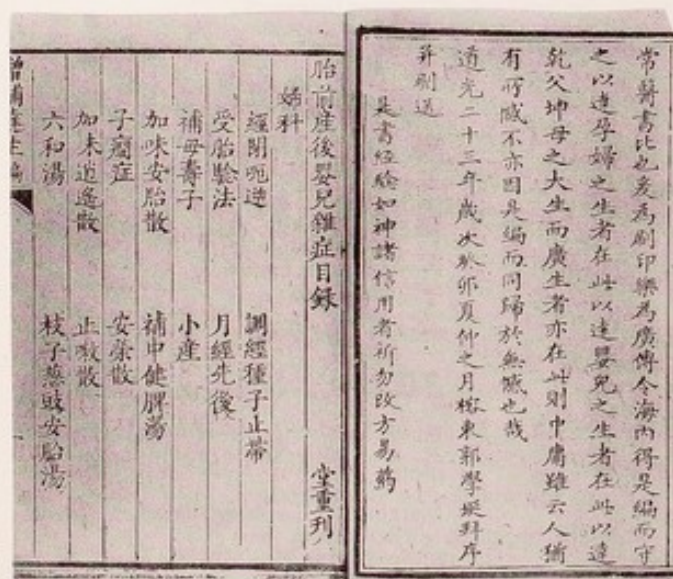 常醫書比也爰為刷印樂為廣傳令海內得是編而守
之以達孕婦之生者在此以達嬰兒之生者在此以達
乾父坤母之大生而廣生者亦在此則中庸雖云人猶
有所憾不亦因是編而同歸於無憾也哉
道光二十三年歲次癸卯夏仲之月 東郭學 拜序
并刷送
是書經驗如神諸信用者祈勿改方易藥
胎前產後嬰兒雜症目錄 堂重刊
婦科
經閉呃逆 調經種子止帶
受胎驗法 月經先後
補母壽子 小產
加味安胎散 補中健脾湯
子癎症 安榮散
加味逍遙散 止嗽散
六和湯 枝子葱豉安胎湯
增補達生編